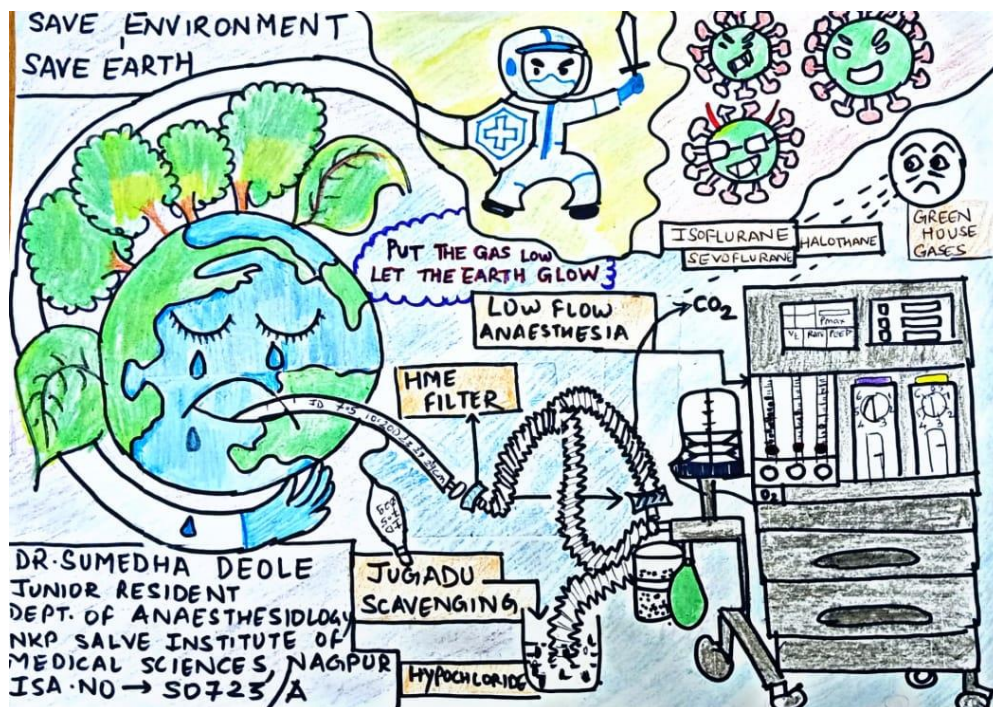 SAVE ENVIRONMENT
SAVE EARTH
PUT THE GAS LOW
LET THE EARTH GLOW
ISOFLURANE
SEVOFLURANE
HALOTHANE
GREEN
HOUSE
GASES
LOW FLOW
ANAESTHESIA
CO2
Pmax
HME
FILTER
O2
JUGADU
SCAVENGING
HYPOCHLORIDE
DR. SUMEDHA DEOLE
JUNIOR RESIDENT
DEPT. OF ANAESTHESIOLOGY
NKP SALVE INSTITUTE OF
MEDICAL SCIENCES, NAGPUR
ISA.NO → S0723/A